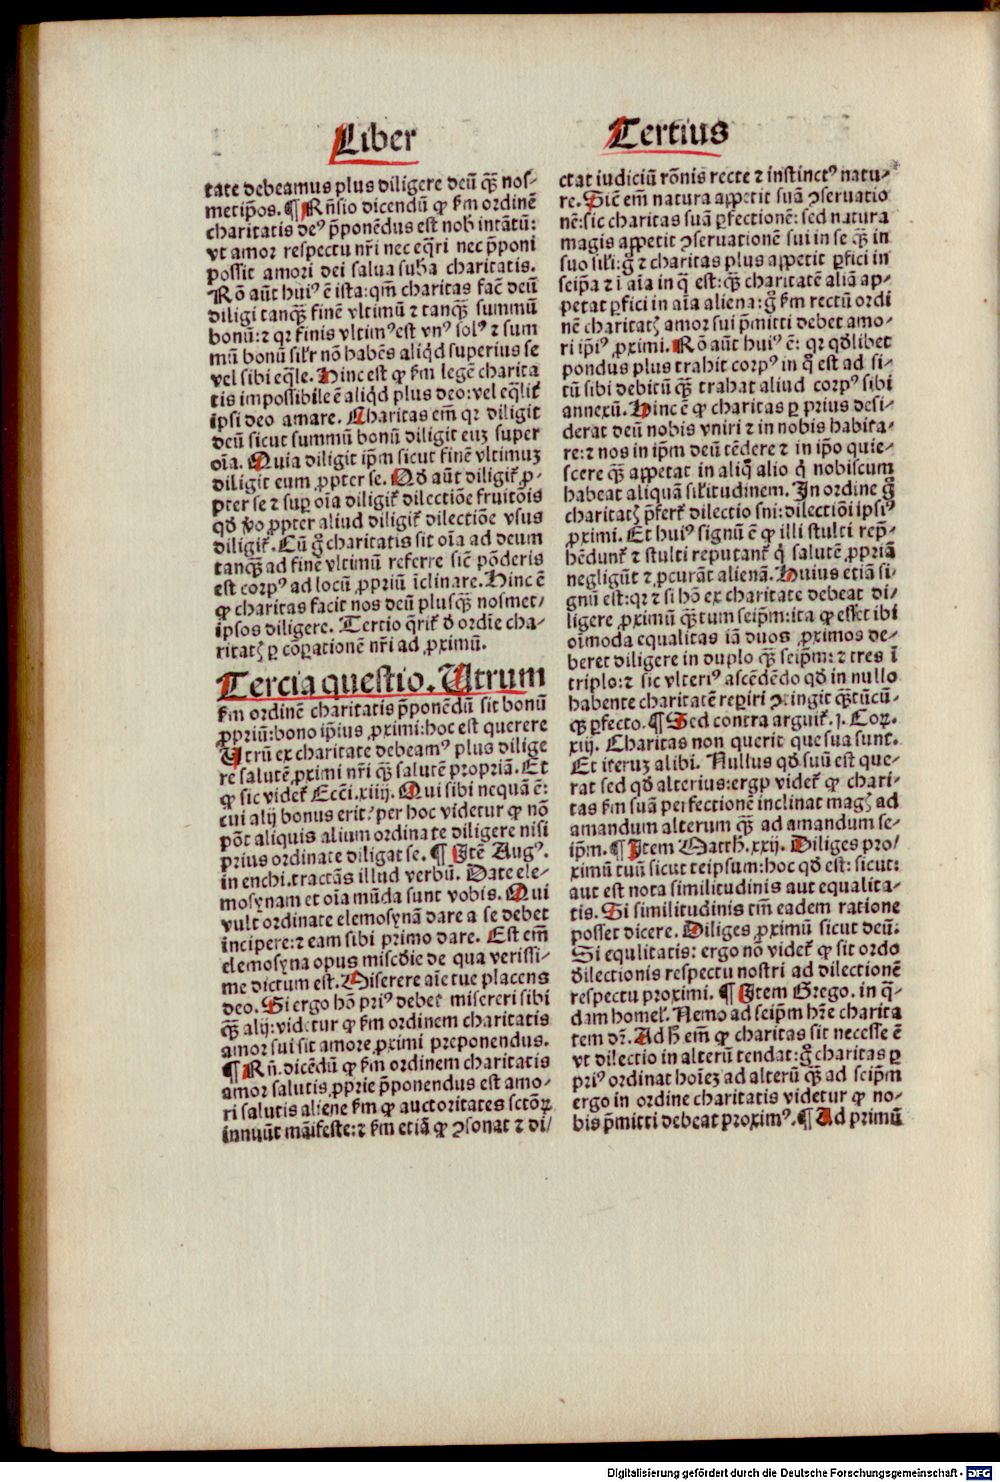 Liber
Tertius
tate debeamus plus diligere deū q̄ꝫ nos-
metip̄os. ¶ Rn̄sio dicendū ꝙ ẜm ordinē
charitatis deꝰ p̄ponendus est nob̄ intātū:
vt amor respectu nr̄i nec eq̄ri nec p̄poni
possit amori dei salua suba charitatis.
Rō aūt huiꝰ ē ista: qm̄ charitas facē deū
diligi tanq̄ꝫ finē vltimū ⁊ tanq̄ꝫ summū
bonū: ⁊ qr finis vltimꝰ est vnꝰ solꝰ ⁊ sum
mū bonū silʳ nō habēs aliq̇d superius se
vel sibi eq̄le. Hinc est ꝙ ẜm legē charita
tis impossibile ē aliq̇d plus deo: vel eq̄lit̄
ipsi deo amare. Charitas em̄ qr diligit
deū sicut summū bonū diligit euꝫ super
oīa. Quia diligit ip̄m sicut finē vltimuꝫ
diligit eum ꝓpter se. Qd̄ aūt diligit̄ ꝓ-
pter se ⁊ suꝑ oīa diligit̄ dilectiōe fruitōis
qd̄ v̄o ꝓpter aliud diligit̄ dilectiōe vsus
diligit̄. Cū g̊ charitatis sit oīa ad deum
tanq̄ꝫ ad finē vltimū referre sic̄ pōderis
est corpꝰ ad locū ꝓpriū īclinare. Hinc ē
ꝙ charitas facit nos deū plusq̄ꝫ nosmet-
ipsos diligere. Tertio q̄rit̄ d̄ ordīe cha-
ritatꝭ ꝑ cōꝑationē nr̄i ad ꝓximū.
Tercia questio. Utrum
ẜm ordinē charitatis p̄ponēdū sit bonū
ꝓpriū: bono ip̄ius ꝓximi: hoc est querere
Utrū ex charitate debeamꝰ plus dilige
re salutē ꝓximi nr̄i q̄ꝫ salutē propriā. Et
ꝙ sic videt̄ Ecci. xiiij. Qui sibi nequā ē:
cui alij bonus erit: per hoc videtur ꝙ nō
pōt aliquis alium ordinate diligere nisi
prius ordinate diligat se. ¶ Itē Augꝰ.
in enchi. tractās illud verbū. Date ele-
mosynam et oīa mūda sunt vobis. Qui
vult ordinate elemosynā dare a se debet
incipere: ⁊ eam sibi primo dare. Est em̄
elemosyna opus miscd̄ie de qua verissi-
me dictum est. Miserere aīe tue placens
deo. Si ergo hō priꝰ debet misereri sibi
q̄ꝫ alij: videtur ꝙ ẜm ordinem charitatis
amor sui sit amore ꝓximi preponendus.
¶ Rn̄. dicēdū ꝙ ẜm ordinem charitatis
amor salutis ꝓprie p̄ponendus est amo-
ri salutis aliene ẜm ꝙ auctoritates sctōꝝ
innuūt māifeste: ⁊ ẜm etiā ꝙ ꝯsonat ⁊ di-
ctat iudiciū rōnis recte ⁊ instinctꝰ natu-
re. Sic̄ em̄ natura appetit suā ꝯseruatio
nē: sic charitas suā ꝑfectionē: sed natura
magis appetit ꝯseruationē sui in se q̄ꝫ in
suo sil̄i: g̊ ⁊ charitas plus appetit ꝑfici in
seip̄a ⁊ ī aīa in q̄ est: q̄ꝫ charitatē aliā ap-
petat ꝑfici in aīa aliena: g̊ ẜm rectū ordi
nē charitatꝭ amor sui p̄mitti debet amo-
ri ip̄iꝰ ꝓximi. Rō aūt huiꝰ ē: qr qd̄libet
pondus plus trahit corpꝰ in q̊ est ad si-
tū sibi debitū q̄ꝫ trahat aliud corpꝰ sibi
annexū. Hinc ē ꝙ charitas ꝑ prius desi-
derat deū nobis vniri ⁊ in nobis habita-
re: ⁊ nos in ip̄m deū tēdere ⁊ in ip̄o quie-
scere q̄ꝫ appetat in aliq̊ alio q̇ nobiscum
habeat aliquā sil̄itudinem. In ordine g̊
charitatꝭ p̄fert̄ dilectio sni: dilectiōi ipsiꝰ
ꝓximi. Et huiꝰ signū ē ꝙ illi stulti rep̄-
hēdunt̄ ⁊ stulti reputant̄ q̇ salutē ꝓpriā
negligūt ⁊ ꝓcurāt alienā. Huius etiā si-
gnū est: qr ⁊ si hō ex charitate debeat di-
ligere ꝓximū q̄ꝫtum seip̄m: ita ꝙ esset ibi
oīmoda equalitas iā duos ꝓximos de-
beret diligere in duplo q̄ꝫ seip̄m: ⁊ tres ī
triplo: ⁊ sic vlteriꝰ ascēdēdo qd̄ in nullo
habente charitatē reꝑiri ꝯtingit q̄ꝫtūcū-
qꝫ ꝑfecto. ¶ Sed contra arguit̄. j. Coꝝ.
xiij. Charitas non querit que sua sunt.
Et iteruꝫ alibi. Nullus qd̄ suū est que-
rat sed qd̄ alterius: ergo videt̄ ꝙ chari-
tas ẜm suā perfectionē inclinat magꝭ ad
amandum alterum q̄ꝫ ad amandum se-
ip̄m. ¶ Item Matth. xxij. Diliges pro-
ximū tuū sicut teipsum: hoc qd̄ est: sicut:
aut est nota similitudinis aut equalita-
tis. Si similitudinis tm̄ eadem ratione
posset dicere. Diliges ꝓximū sicut deū.
Si equlitatis: ergo nō videt̄ ꝙ sit ordo
dilectionis respectu nostri ad dilectionē
respectu proximi. ¶ Item Grego. in q̄-
dam homel̄. Nemo ad seip̄m hr̄e charita
tem dr̄. Ad h̄ em̄ ꝙ charitas sit necesse ē
vt dilectio in alterū tendat: g̊ charitas ꝑ
priꝰ ordinat hoīeꝫ ad alterū q̄ꝫ ad seip̄m
ergo in ordine charitatis videtur ꝙ no-
bis p̄mitti debeat proximꝰ. ¶ Ad primū
Digitalisierung gefördert durch die Deutsche Forschungsgemeinschaft - DFG